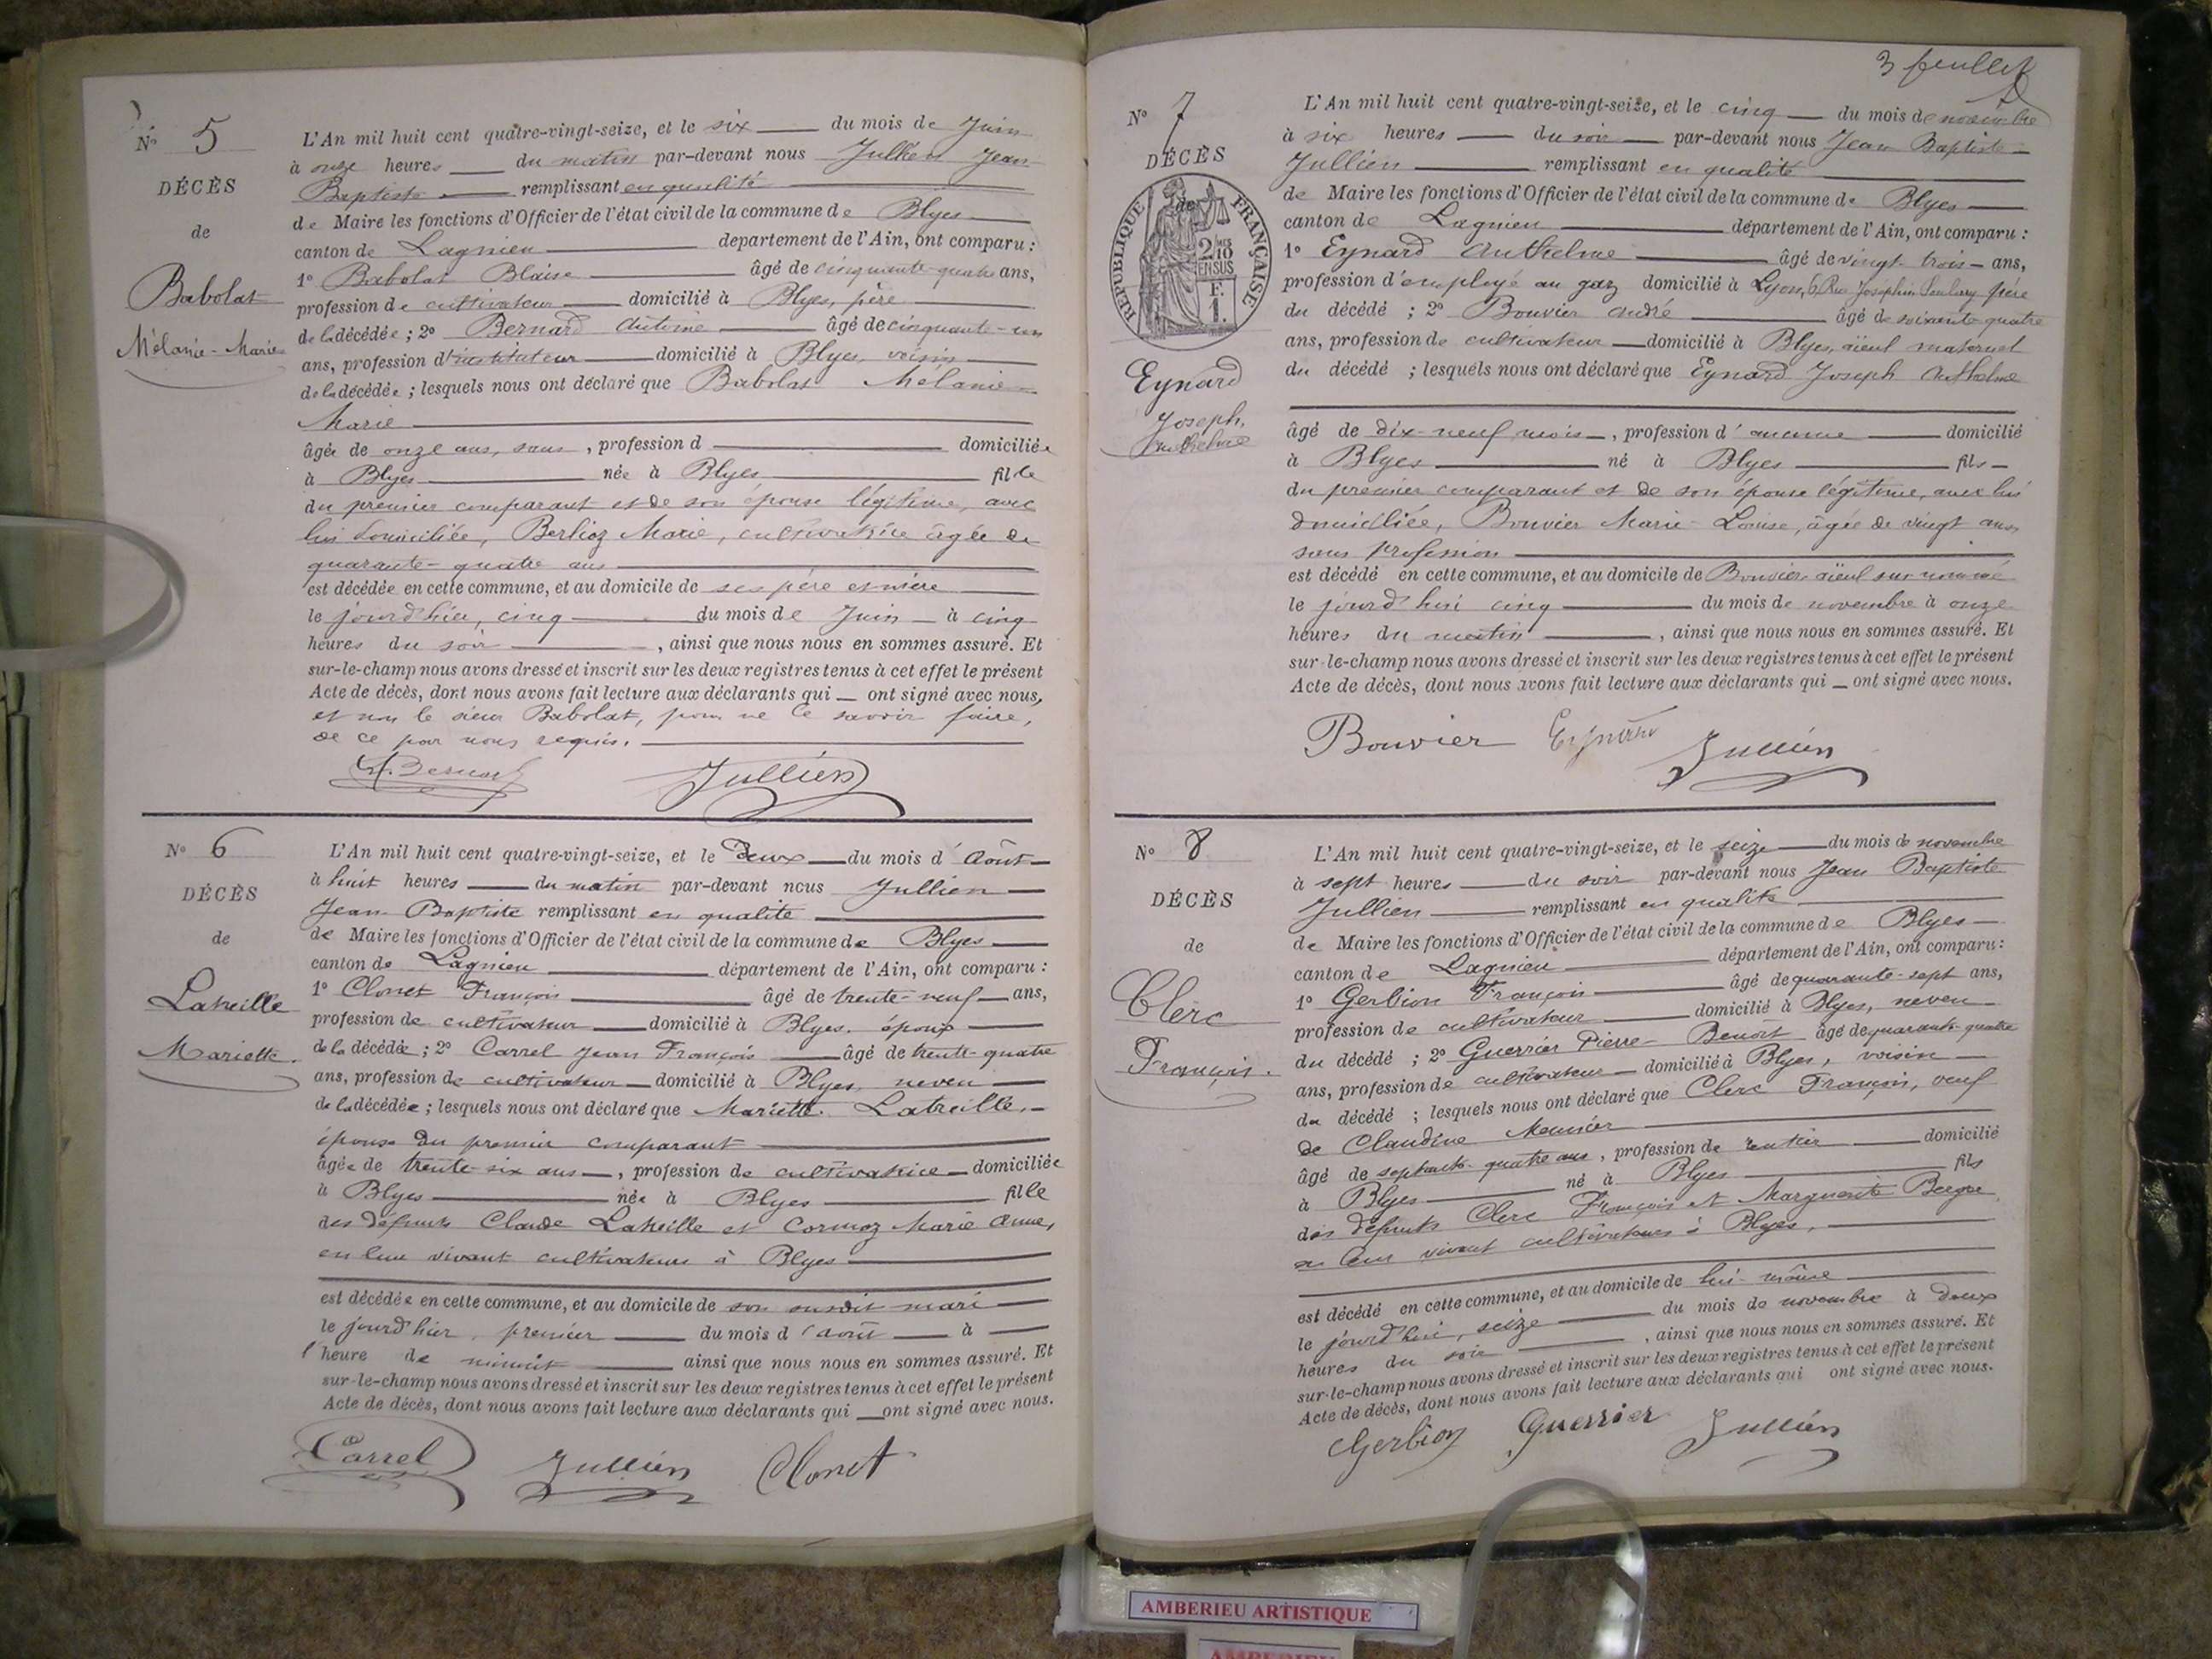 N° 5
DÉCÈS
de
Babolat
Mélanie-Marie
L'An mil huit cent quatre-vingt-seize, et le six du mois de Juin
à onze heures du matin par-devant nous Jullien Jean
Baptiste remplissant en qualité
de Maire les fonctions d'Officier de l'état civil de la commune de Blyes
canton de Lagnieu departement de l'Ain, ont comparu :
1° Babolat Blaise âgé de cinquante-quatre ans,
profession de cultivateur domicilié à Blyes, père
de la décédée ; 2° Bernard Antoine âgé de cinquante-un
ans, profession d'instituteur domicilié à Blyes, voisin
de la décédée ; lesquels nous ont déclaré que Babolat Mélanie
Marie
âgée de onze ans, sans , profession d domiciliée
à Blyes née à Blyes fille
du premier comparant et de son épouse légitime, avec
lui domiciliée, Berlioz Marie, cultivatrice âgée de
quarante-quatre ans
est décédée en cette commune, et au domicile de ses père et mère
le jourd'hier, cinq du mois de Juin à cinq
heures du soir , ainsi que nous nous en sommes assuré. Et
sur-le-champ nous avons dressé et inscrit sur les deux registres tenus à cet effet le présent
Acte de décès, dont nous avons fait lecture aux déclarants qui ont signé avec nous,
et non le sieur Babolat, pour ne le savoir faire,
de ce par nous requis.
A. Bernard Jullien
N° 6
DÉCÈS
de
Latreille
Mariette.
L'An mil huit cent quatre-vingt-seize, et le deux du mois d'Août
à huit heures du matin par-devant nous Jullien
Jean-Baptiste remplissant en qualité
de Maire les fonctions d'Officier de l'état civil de la commune de Blyes
canton de Lagnieu département de l'Ain, ont comparu :
1° Clonet François âgé de trente-neuf ans,
profession de cultivateur domicilié à Blyes. époux
de la décédée ; 2° Carrel Jean François âgé de trente-quatre
ans, profession de cultivateur domicilié à Blyes, neveu
de la décédée ; lesquels nous ont déclaré que Mariette Latreille,
épouse du premier comparant
âgée de trente-six ans , profession de cultivatrice domiciliée
à Blyes née à Blyes fille
des défunts Claude Latreille et Cormoz Marie Anne,
en leur vivant cultivateurs à Blyes
est décédée en cette commune, et au domicile de son susdit mari
le jourd'hier, premier du mois d'août à
l'heure de minuit ainsi que nous nous en sommes assuré. Et
sur-le-champ nous avons dressé et inscrit sur les deux registres tenus à cet effet le présent
Acte de décès, dont nous avons fait lecture aux déclarants qui ont signé avec nous.
Carrel Jullien Clonet
3 feuillet
N° 7
DÉCÈS
de
RÉPUBLIQUE FRANÇAISE
2/10 EN SUS
F. 1.
Eynard
Joseph
Anthelme
L'An mil huit cent quatre-vingt-seize, et le cinq du mois de novembre
à six heures du soir par-devant nous Jean Baptiste
Jullien remplissant en qualité
de Maire les fonctions d'Officier de l'état civil de la commune de Blyes
canton de Lagnieu département de l'Ain, ont comparu :
1° Eynard Anthelme âgé de vingt-trois ans,
profession d'employé au gaz domicilié à Lyon, 6, Rue Joséphin Soulary père
du décédé ; 2° Bouvier André âgé de soixante-quatre
ans, profession de cultivateur domicilié à Blyes, aïeul maternel
du décédé ; lesquels nous ont déclaré que Eynard Joseph Anthelme
âgé de dix-neuf mois , profession d'aucune domicilié
à Blyes né à Blyes fils
du premier comparant et de son épouse légitime, avec lui
domiciliée, Bouvier Marie-Louise, âgée de vingt ans,
sans profession
est décédé en cette commune, et au domicile de Bouvier aïeul sus nommé
le jourd'hui cinq du mois de novembre à onze
heures du matin , ainsi que nous nous en sommes assuré. Et
sur-le-champ nous avons dressé et inscrit sur les deux registres tenus à cet effet le présent
Acte de décès, dont nous avons fait lecture aux déclarants qui ont signé avec nous.
Bouvier Eynard Jullien
N° 8
DÉCÈS
de
Clerc
François.
L'An mil huit cent quatre-vingt-seize, et le seize du mois de novembre
à sept heures du soir par-devant nous Jean Baptiste
Jullien remplissant en qualité
de Maire les fonctions d'Officier de l'état civil de la commune de Blyes
canton de Lagnieu département de l'Ain, ont comparu :
1° Gerbion François âgé de quarante-sept ans,
profession de cultivateur domicilié à Blyes, neveu
du décédé ; 2° Guerrier Pierre-Benoît âgé de quarante-quatre
ans, profession de cultivateur domicilié à Blyes, voisin
du décédé ; lesquels nous ont déclaré que Clerc François, veuf
de Claudine Meunier
âgé de septante-quatre ans, profession de rentier domicilié
à Blyes né à Blyes fils
des défunts Clerc François et Marguerite
en leur vivant cultivateurs à Blyes,
est décédé en cette commune, et au domicile de lui-même
le jourd'hui, seize du mois de novembre à deux
heures du soir , ainsi que nous nous en sommes assuré. Et
sur-le-champ nous avons dressé et inscrit sur les deux registres tenus à cet effet le présent
Acte de décès, dont nous avons fait lecture aux déclarants qui ont signé avec nous.
Gerbion Guerrier Jullien
AMBERIEU ARTISTIQUE
AMBERIEU